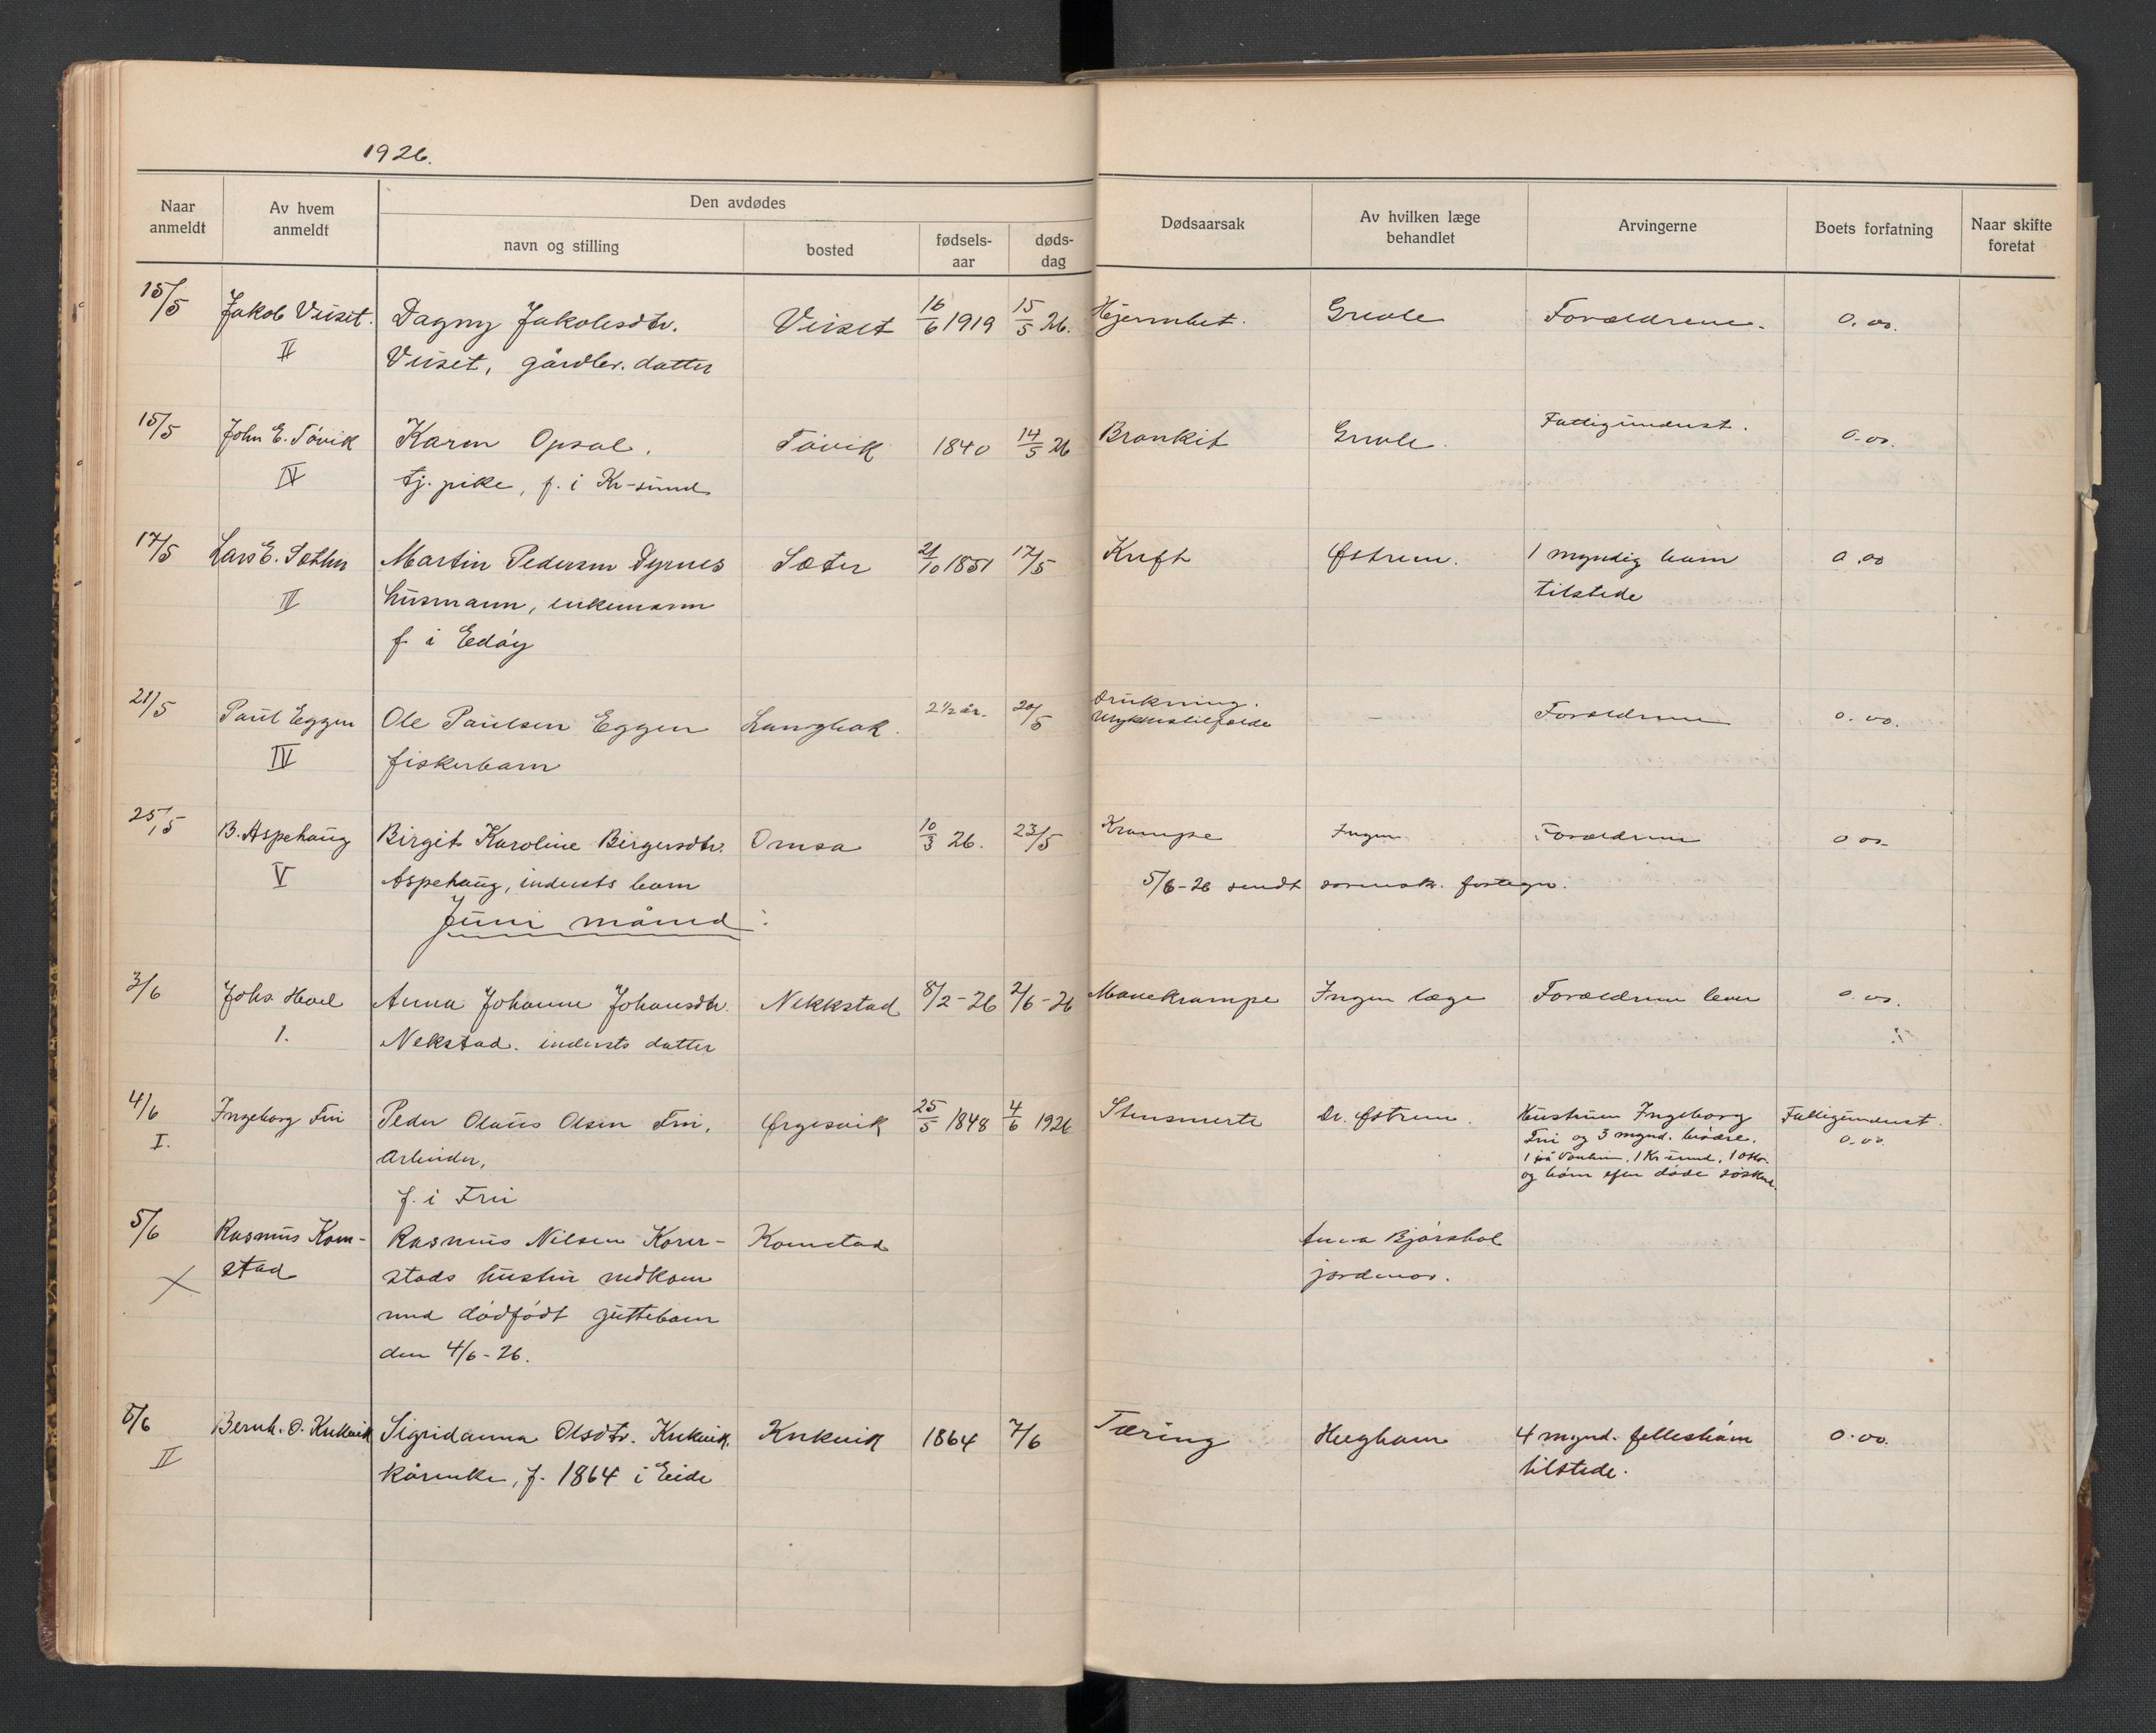 1926.
Naar anmeldt
Av hvem anmeldt
Den avdødes
navn og stilling
bosted
fødsels-aar
døds-dag
Dødsaarsak
Av hvilken læge behandlet
Arvingerne
Boets forfatning
Naar skifte foretat
15/5 Jakob Viiset. Dagny Jakobsdtr. Viiset 16/6 1919 15/5 26. Hjernebet. Greole Forældrene. 0.00.
II Viiset, gårdbr. datter
15/5 John E. Tøvik Karen Opsal. Tøvik 1840 14/5 26 Bronkit Greole. Fattigunderst. 0.00.
IV tj. pike, f. i Kr-sund
17/5 Lars E. Sæther Martin Pedersen Dyrnes Sæter 21/10 1851 17/5 Kreft Østrem. 1 myndig barn 0.00
II husmann, enkemann tilstede
f. i Edøy
21/5 Paul Eggen Ole Paulsen Eggen Langbak. 2 1/2 år. 20/5 Drukning. - Forældrene 0.00.
Ulykkestilfælde
IV fiskerbarn
25/5 B. Aspehaug Birgit Karoline Birgersdtr. Omsa 10/3 26. 23/5 Krampe Ingen Forældrene 0 00
V Aspehaug, indersts barn 5/6-26 sendt sorensk. fortegn.
Juni måned:
3/6 Johs Havel Anna Johanne Johansdtr. Nekkstad 8/2-26 2/6-26 Mavekrampe Ingen læge Forældrene lever 0.00.
1. Nekstad. indersts datter
4/6 Ingeborg Frei Peder Olaus Olsen Frei, Ørgesvik 25/5 1848 4/6 1926 Stensmerte Dr. Østrem. Hustruen Ingeborg Fattigunderst.
I. Arbeider, Frei og 3 mynd. brødre. 0.00.
1 på, 1 Kr sund, 1 Oslo
og børn efter døde søsken.
f. i Frei
5/6 Rasmus Kom- Rasmus Nilsen Korn- Komstad Anna Bjørshol
X stad stads hustru nedkom jordmor.
med dødfødt guttebarn
den 4/6-26.
8/6 Bernh. O. Knekvik Sigridanna Olsdtr. Knekvik. Knekvik 1864 7/6 Tæring Hegham 4 mynd. fellesbørn 0.00.
II kårenke, f. 1864 i Eide tilstede.